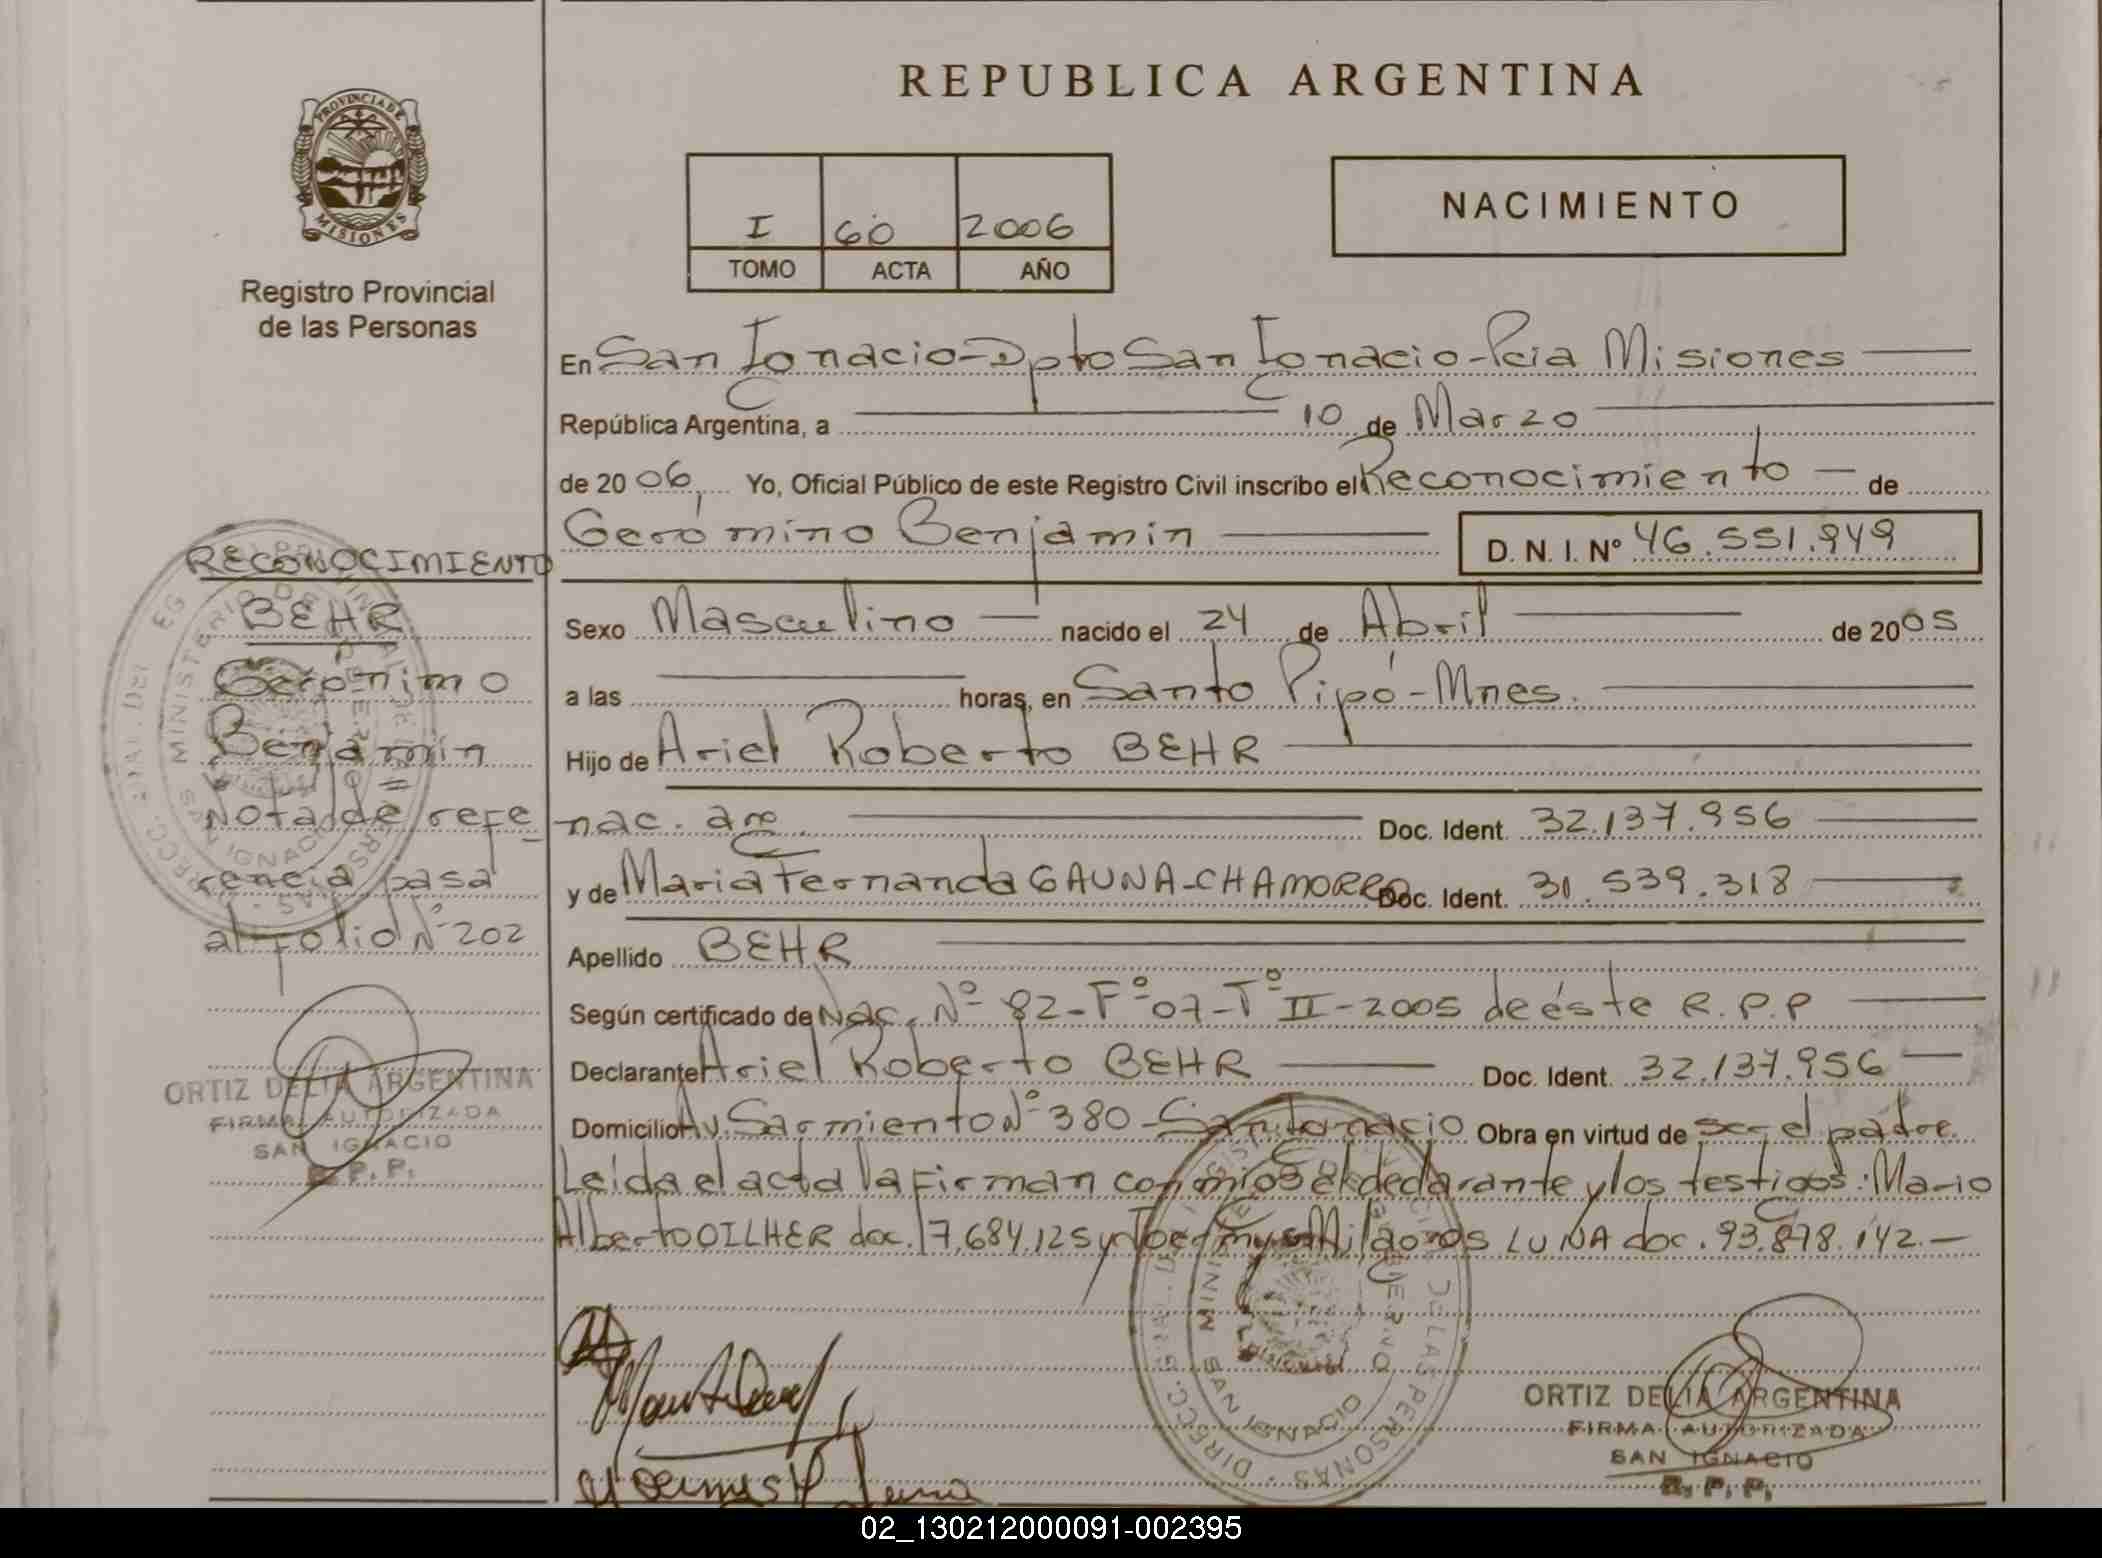 REPUBLICA ARGENTINA
PROVINCIA DE
MISIONES
Registro Provincial
de las Personas
I 60 2006
TOMO ACTA AÑO
NACIMIENTO
En San Ignacio-Dpto San Ignacio-Pcia Misiones
República Argentina, a 10 de Marzo
de 2006, Yo, Oficial Público de este Registro Civil inscribo el Reconocimiento de
Gerómino Benjamin D. N. I. Nº 46.551.949
Sexo Masculino nacido el 24 de Abril de 2005
a las horas, en Santo Pipó-Mnes.
Hijo de Ariel Roberto BEHR
nac. arg. Doc. Ident. 32.137.956
y de Maria Fernanda GAUNA-CHAMORRO Doc. Ident. 31.539.318
Apellido BEHR
Según certificado de Nac. Nº 82-Fº07-Tº II-2005 de éste R.P.P
Declarante Ariel Roberto BEHR Doc. Ident. 32.137.956
Domicilio Av. Sarmiento Nº 380-San Ignacio Obra en virtud de ser el padre.
Leida el acta la firman conmigo el declarante y los testigos: Mario
Alberto OILHER doc. 17.684.125 y Milagros LUNA doc. 93.878.142.-
RECONOCIMIENTO
BEHR
Gerónimo
Benjamín
=
Nota de refe-
rencia pasa
al folio Nº 202
ORTIZ DELIA ARGENTINA
FIRMA AUTORIZADA
SAN IGNACIO
R. P. P.
DIRECC. PERSONAS
MINISTERIO DE
SAN IGNACIO
ORTIZ DELIA ARGENTINA
FIRMA AUTORIZADA
SAN IGNACIO
R. P. P.
02_130212000091-002395